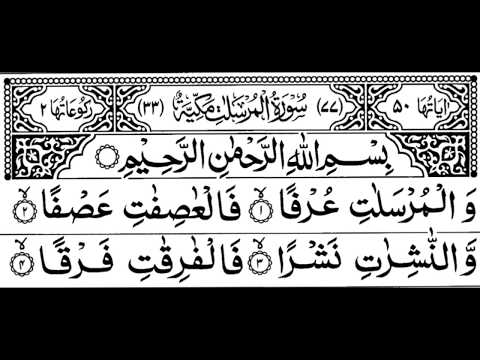 اٰیاتها ۵۰ (۷۷) سُوْرَةُ الْمُرْسَلٰتِ مَكِّيَّةٌ (۳۳) ركوعاتها ۲
بِسْمِ اللّٰهِ الرَّحْمٰنِ الرَّحِيْمِ
وَالْمُرْسَلٰتِ عُرْفًا ۙ﴿۱﴾ فَالْعٰصِفٰتِ عَصْفًا ۙ﴿۲﴾
وَّالنّٰشِرٰتِ نَشْرًا ۙ﴿۳﴾ فَالْفٰرِقٰتِ فَرْقًا ۙ﴿۴﴾